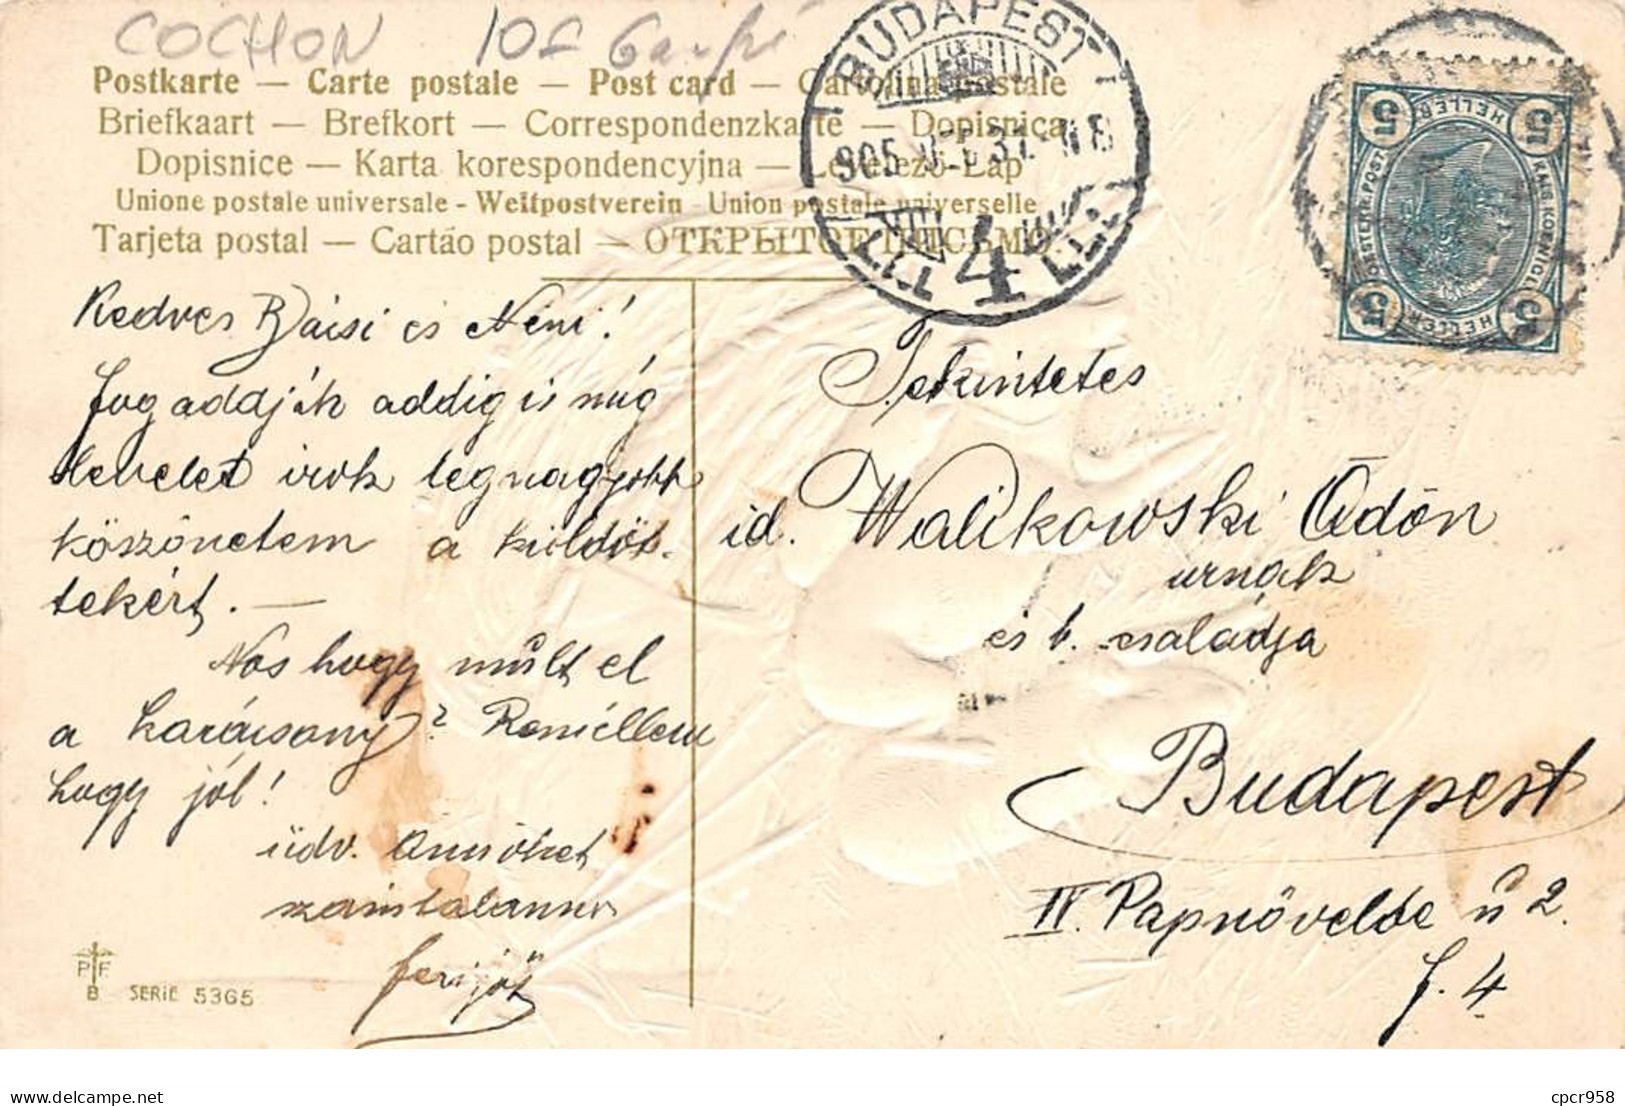 COCHON 10F
Postkarte — Carte postale — Post card — Cartolina postale
Briefkaart — Brefkort — Correspondenzkarte — Dopisnica
Dopisnice — Karta korespondencyjna — Levelező-Lap
Unione postale universale - Weltpostverein - Union postale universelle
Tarjeta postal — Cartão postal — ОТКРЫТОЕ ПИСЬМО
BUDAPEST
905
4
5 HELLER 5
5 HELLER 5
Kedves Bácsi és Néni!
Fogadják addig is míg
levelet irok legnagyobb
köszönetem a küldöt-
tekért. —
Nos hogy múlt el
a karácsony? Remélem
hogy jól!
üdv. Önöket
számtalanszor
Tekintetes
id. Walikowski Ödön
urnak
és b. családja
Budapest
IV. Papnövelde u 2.
f. 4
PFB SERIE 5365
delcampe.net
cpcr958